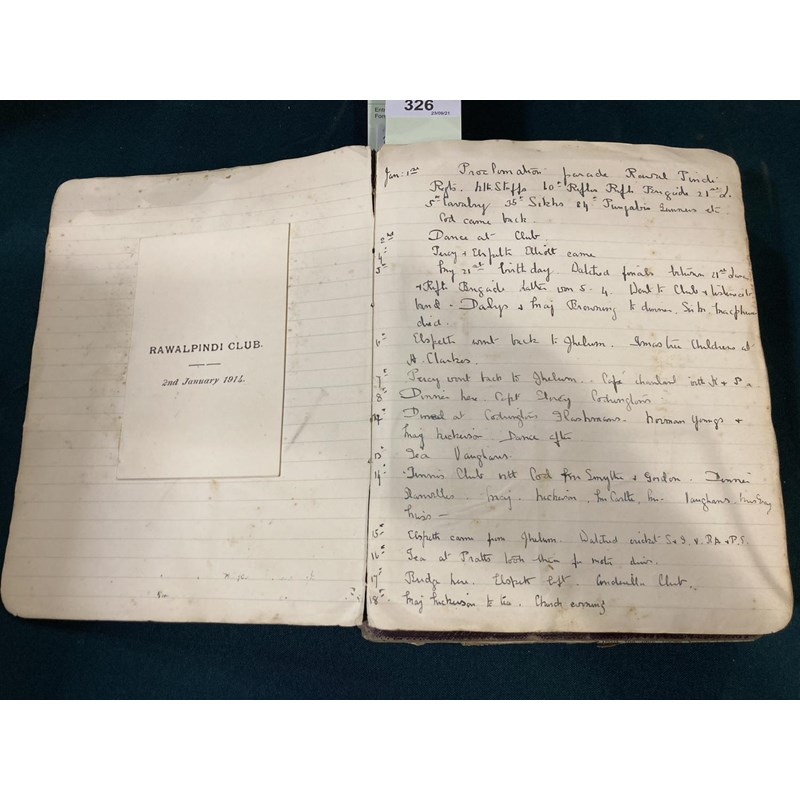 326
23/09/21
RAWALPINDI CLUB.
2nd January 1914.
Jan: 1st Proclamation parade Rawal Pindi
Regts. Nth Staffs 10th Rifle Brigade 21st L.
5th Cavalry 35th Sikhs 84th Punjabis Gunners etc
Cod came back.
2nd Dance at Club.
4th Percy & Elspeth Elliott came
5th My 21st birthday. Watched finals between 21st
& Rifle Brigade latter won 5. 4. Went to Club & listened to
band - Dalys & Maj Browning to dinner. Sir
died.
6th Elspeth went back to Jhelum. Xmas tree Children at
A. Clarkes.
7th Percy went back to Jhelum. Café chantant with
8th Dinner here. Capt Codringtons
12th Dined at Codringtons Flashmans. Norman Youngs &
Maj Nickerson. Dance after
13th Tea Vaughans.
14th Tennis Club with Cod Smythe & Gordon. Dinner
Maj. Nickerson, Vaughans
15th Elspeth came from Jhelum. Watched cricket S & G. v. RA & P.S.
16th Tea at Pratts took them for motor drive.
17th Here. Elspeth left. Cinderella Club.
18th Maj Nickerson to tea. Church evening